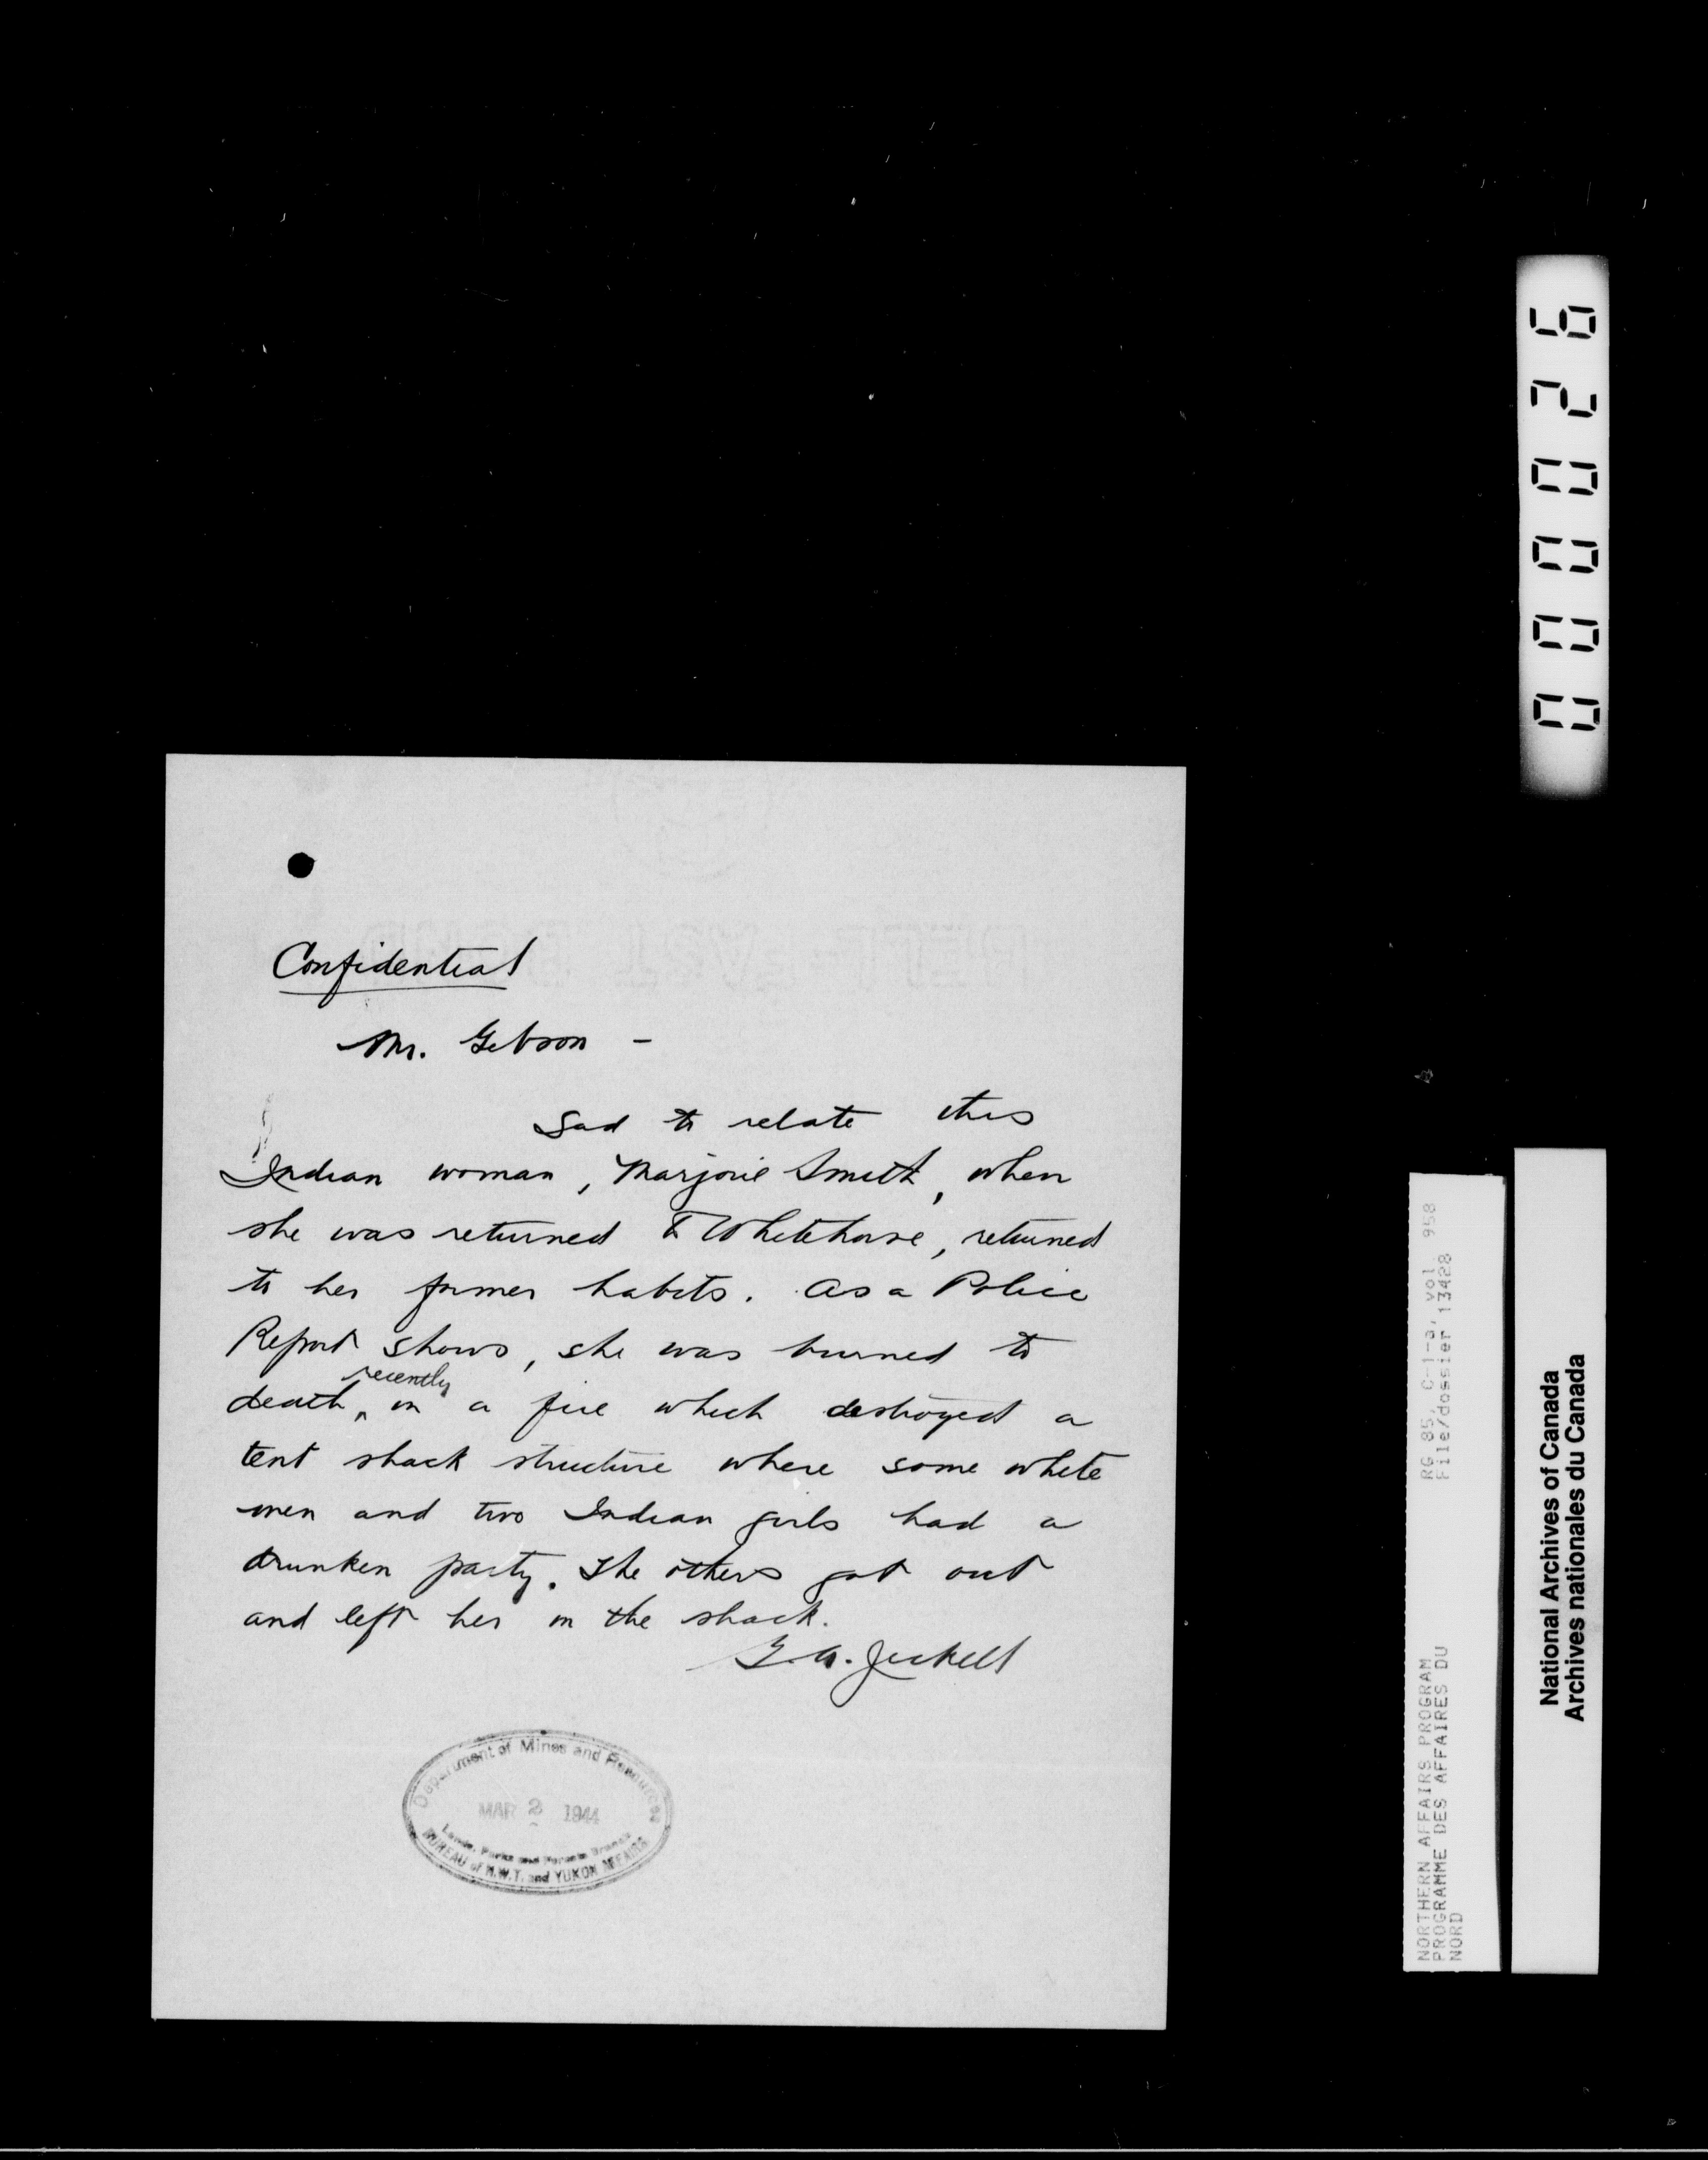 Confidential
Mr. Gibson -
Sad to relate this
Indian woman, Marjorie Smith, when
she was returned to Whitehorse, returned
to her former habits. As a Police
Report shows, she was burned to
recently
death, in a fire which destroyed a
tent shack structure where some white
men and two Indian girls had a
drunken party. The others got out
and left her in the shack.
G.A. Jeckell
Department of Mines and Resources
MAR 2 1944
Lands, Parks and Forests Branch
BUREAU of N.W.T. and YUKON AFFAIRS
000026
RG 85, C-1-a, vol. 958
File/dossier 13428
NORTHERN AFFAIRS PROGRAM
PROGRAMME DES AFFAIRES DU
NORD
National Archives of Canada
Archives nationales du Canada